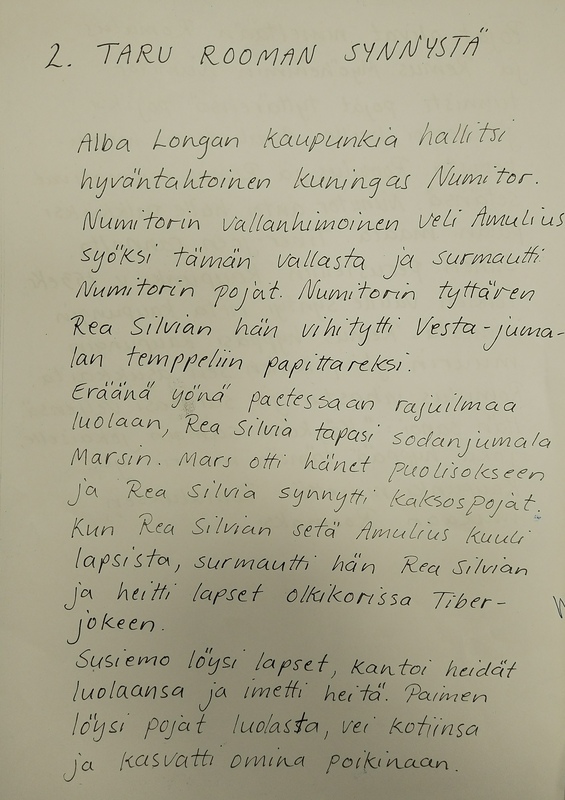 2. TARU ROOMAN SYNNYSTÄ
Alba Longan kaupunkia hallitsi
hyväntahtoinen kuningas Numitor.
Numitorin vallanhimoinen veli Amulius
syöksi tämän vallasta ja surmautti
Numitorin pojat. Numitorin tyttären
Rea Silvian hän vihitytti Vesta-juma-
lan temppeliin papittareksi.
Eräänä yönä paetessaan rajuilmaa
luolaan, Rea Silvia tapasi sodanjumala
Marsin. Mars otti hänet puolisokseen
ja Rea Silvia synnytti kaksospojat.
Kun Rea Silvian setä Amulius kuuli
lapsista, surmautti hän Rea Silvian
ja heitti lapset olkikorissa Tiber-
jokeen.
Susiemo löysi lapset, kantoi heidät
luolaansa ja imetti heitä. Paimen
löysi pojat luolasta, vei kotiinsa
ja kasvatti omina poikinaan.